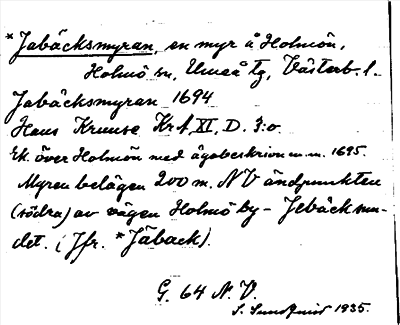 *Jabäcksmyran, en myr å Holmön,
Holmö sn, Umeå tg, Västerb. l.
Jabäcksmyran 1694
Hans Kruuse Kr A XI, D. 3:o.
Ek. över Holmön med ägobeskrivn m.m. 1695.
Myren belägen 200 m. NV ändpunkten
(södra) av vägen Holmö by - Jebäcksun-
det. (Jfr. *Jäback).
G. 64 N. V.
1935.